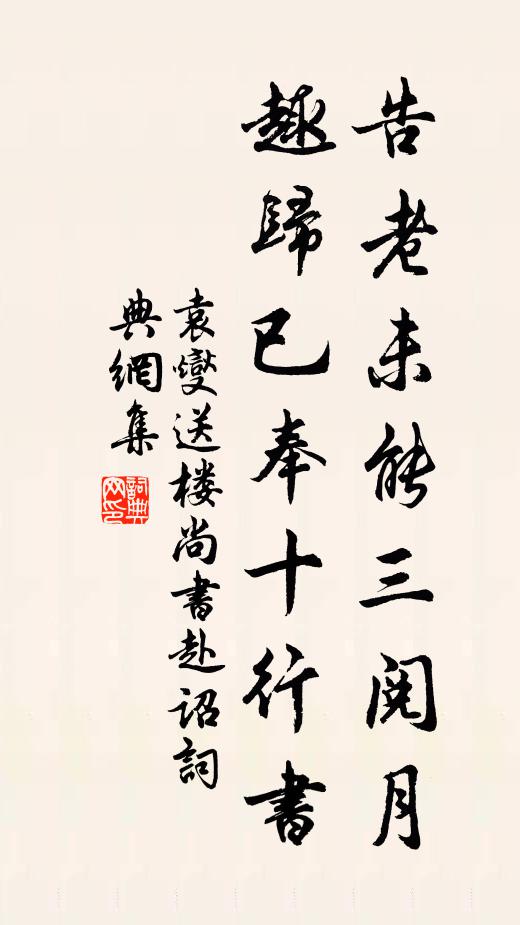 告老未能三阅月
趣歸已奉十行書
袁燮送楼尚書赴诏詞
典網集
詞典网印